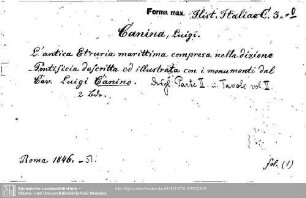 Forma max. Hist. Italiae C. 3
Canina, Luigi.
L'antica Etruria marittima compresa nella dizione
Pontificia descritta ed illustrata con i monumenti dal
Cav. Luigi Canino. Parte II Tavole vol II
2 Bde.
Roma 1846. - 51. fol. (1)